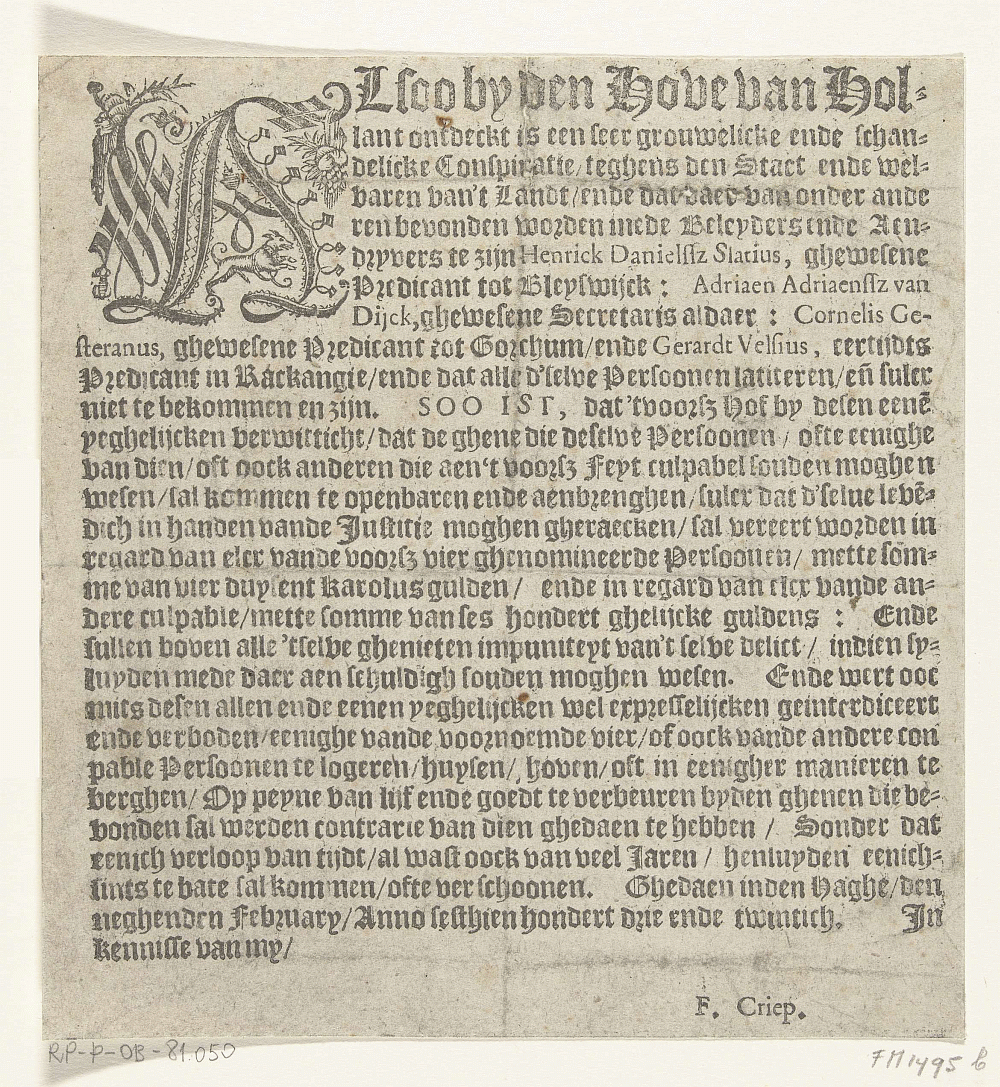 ALsoo by den Hove van Hol-
lant ontdeckt is een seer grouwelicke ende schan-
delicke Conspiratie/teghens den Staet ende wel-
varen van't Landt/ende dat daer van onder ande
ren bevonden worden mede Beleyders ende Aen-
dryvers te zijn Henrick Danielssz Slatius, ghewesene
Predicant tot Bleyswijck: Adriaen Adriaenssz van
Dijck, ghewesene Secretaris aldaer: Cornelis Ge-
steranus, ghewesene Predicant tot Gorchum/ende Gerardt Velsius, eertijdts
Predicant in Rackangie/ende dat alle d'selve Persoonen latiteren/eñ sulcx
niet te bekommen en zijn. SOO IST, dat 'tvoorsz Hof by desen eenē
yeghelijcken verwitticht/dat de ghene die deselve Persoonen/ ofte eenighe
van dien/oft oock anderen die aen't voorsz Feyt culpabel souden moghen
wesen/sal kommen te openbaren ende aenbrenghen/sulcx dat d'selve levē-
dich in handen vande Justitie moghen gheraecken/ sal vereert worden in
regard van elcx vande voorsz vier ghenomineerde Persoonen/ mette som-
me van vier duysent Karolus gulden/ ende in regard van elcx vande an-
dere culpable/mette somme van ses hondert ghelijcke guldens: Ende
sullen boven alle 'tselve ghenieten impuniteyt van't selve delict/ indien sy-
luyden mede daer aen schuldigh souden moghen wesen. Ende wert ooc
mits desen allen ende eenen yeghelijcken wel expresselijcken geinterdiceert
ende verboden/eenighe vande voornoemde vier/of oock vande andere coul
pable Persoonen te logeren/huysen/ hoven/oft in eenigher manieren te
berghen/ Op peyne van lijf ende goedt te verbeuren byden ghenen die be-
vonden sal werden contrarie van dien ghedaen te hebben/ Sonder dat
eenich verloop van tijdt/al wast oock van veel Jaren/ henluyden eenich-
sints te bate sal kommen/ofte verschoonen. Ghedaen inden Haghe/den
neghenden February/Anno sesthien hondert drie ende twintich. In
kennisse van my/
F. Criep.
RP-P-OB-81.050
FM1495 b